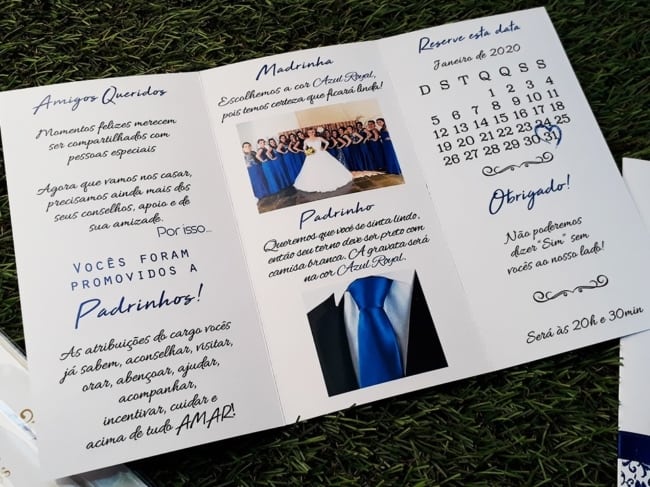 Amigos Queridos
Momentos felizes merecem
ser compartilhados com
pessoas especiais
Agora que vamos nos casar,
precisamos ainda mais dos
seus conselhos, apoio e de
sua amizade.
Por isso...
VOCÊS FORAM
PROMOVIDOS A
Padrinhos!
As atribuições do cargo vocês
já sabem, aconselhar, visitar,
orar, abençoar, ajudar,
acompanhar,
incentivar, cuidar e
acima de tudo AMAR!
Madrinha
Escolhemos a cor Azul Royal,
pois temos certeza que ficará linda!
Padrinho
Queremos que você se sinta lindo,
então seu terno deve ser preto com
camisa branca. A gravata será
na cor Azul Royal.
Reserve esta data
Janeiro de 2020
D S T Q Q S S
1 2 3 4
5 6 7 8 9 10 11
12 13 14 15 16 17 18
19 20 21 22 23 24 25
26 27 28 29 30 31
Obrigado!
Não poderemos
dizer "Sim" sem
vocês ao nosso lado!
Será às 20h e 30min